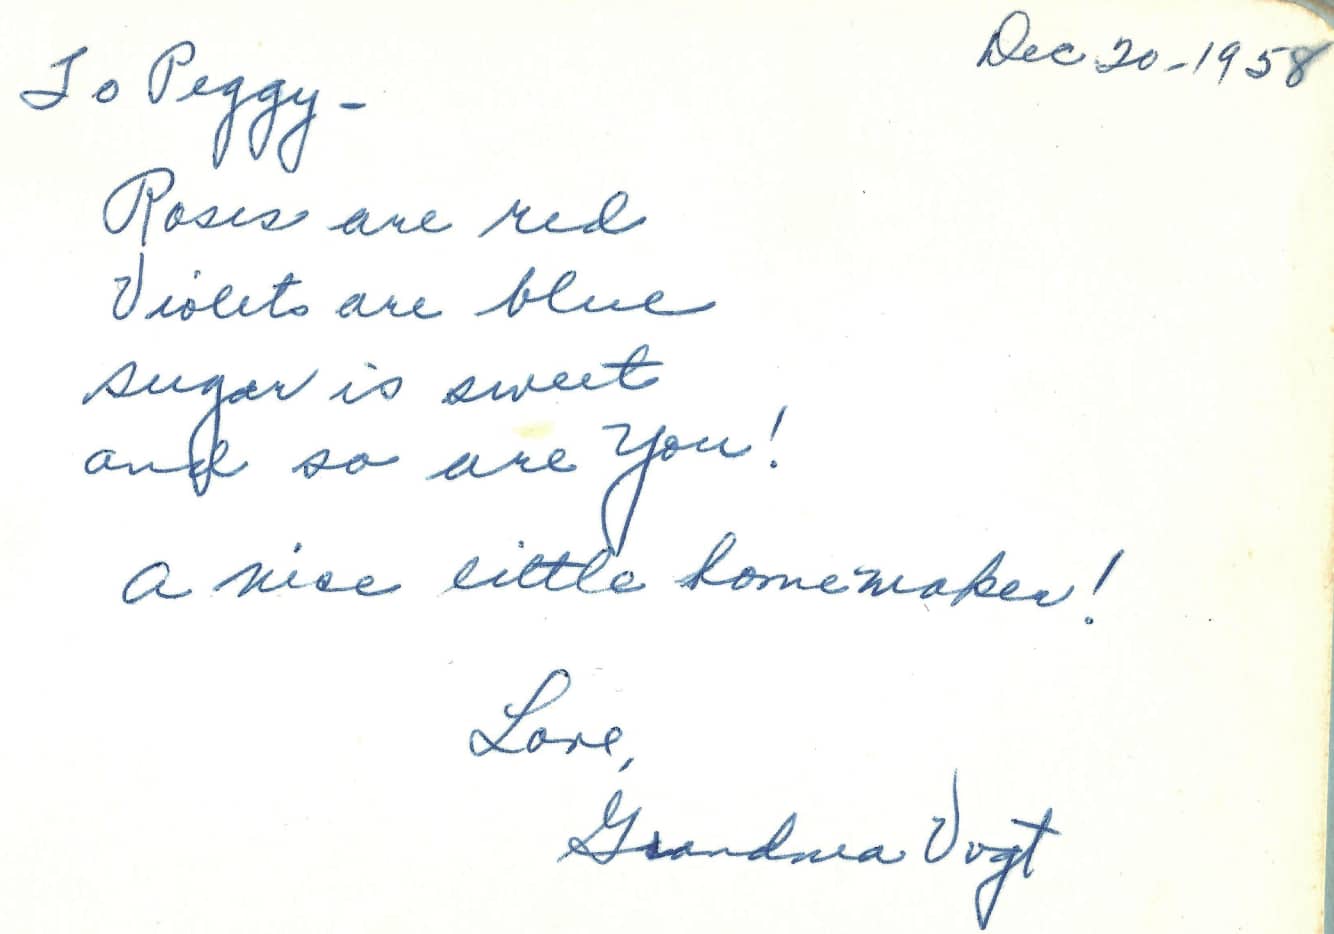 Dec 20-1958
To Peggy-
Roses are red
Violets are blue
sugar is sweet
and so are you!
a nice little homemaker!
Love,
Grandma Vogt